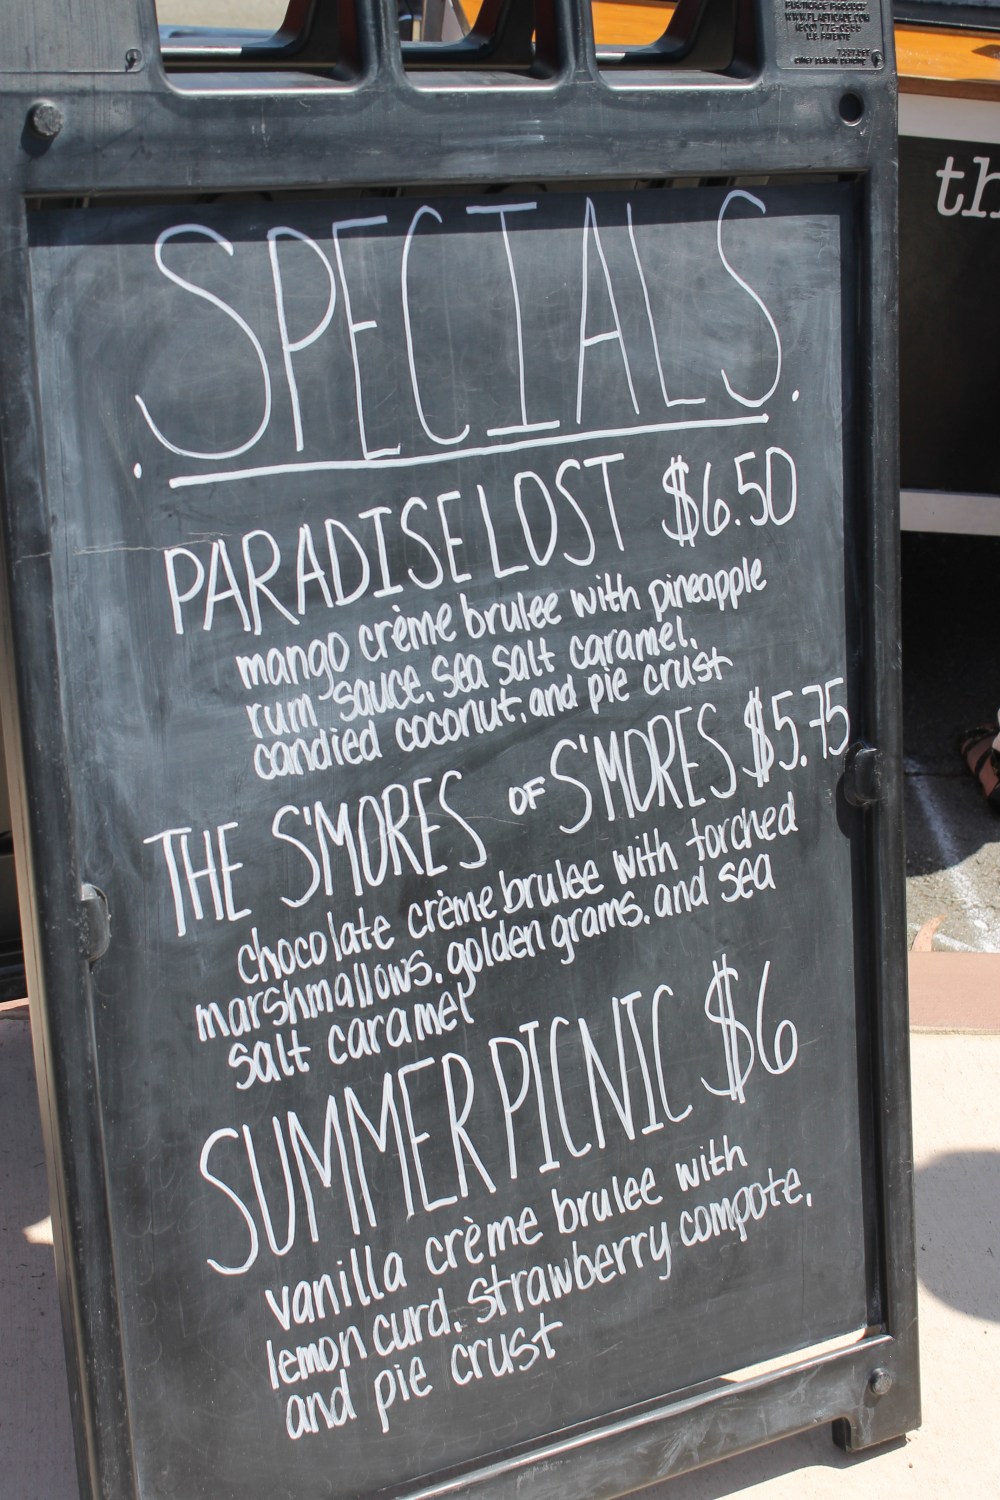 PLASTICADE PRODUCT
WWW.PLASTICADE.COM
U.S. PATENTS
th
.SPECIALS.
PARADISE LOST $6.50
mango crème brulee with pineapple
rum sauce, sea salt caramel,
candied coconut, and pie crust
THE S'MORES OF S'MORES $5.75
chocolate crème brulee with torched
marshmallows, golden grams, and sea
salt caramel
SUMMER PICNIC $6
vanilla crème brulee with
lemon curd, strawberry compote,
and pie crust